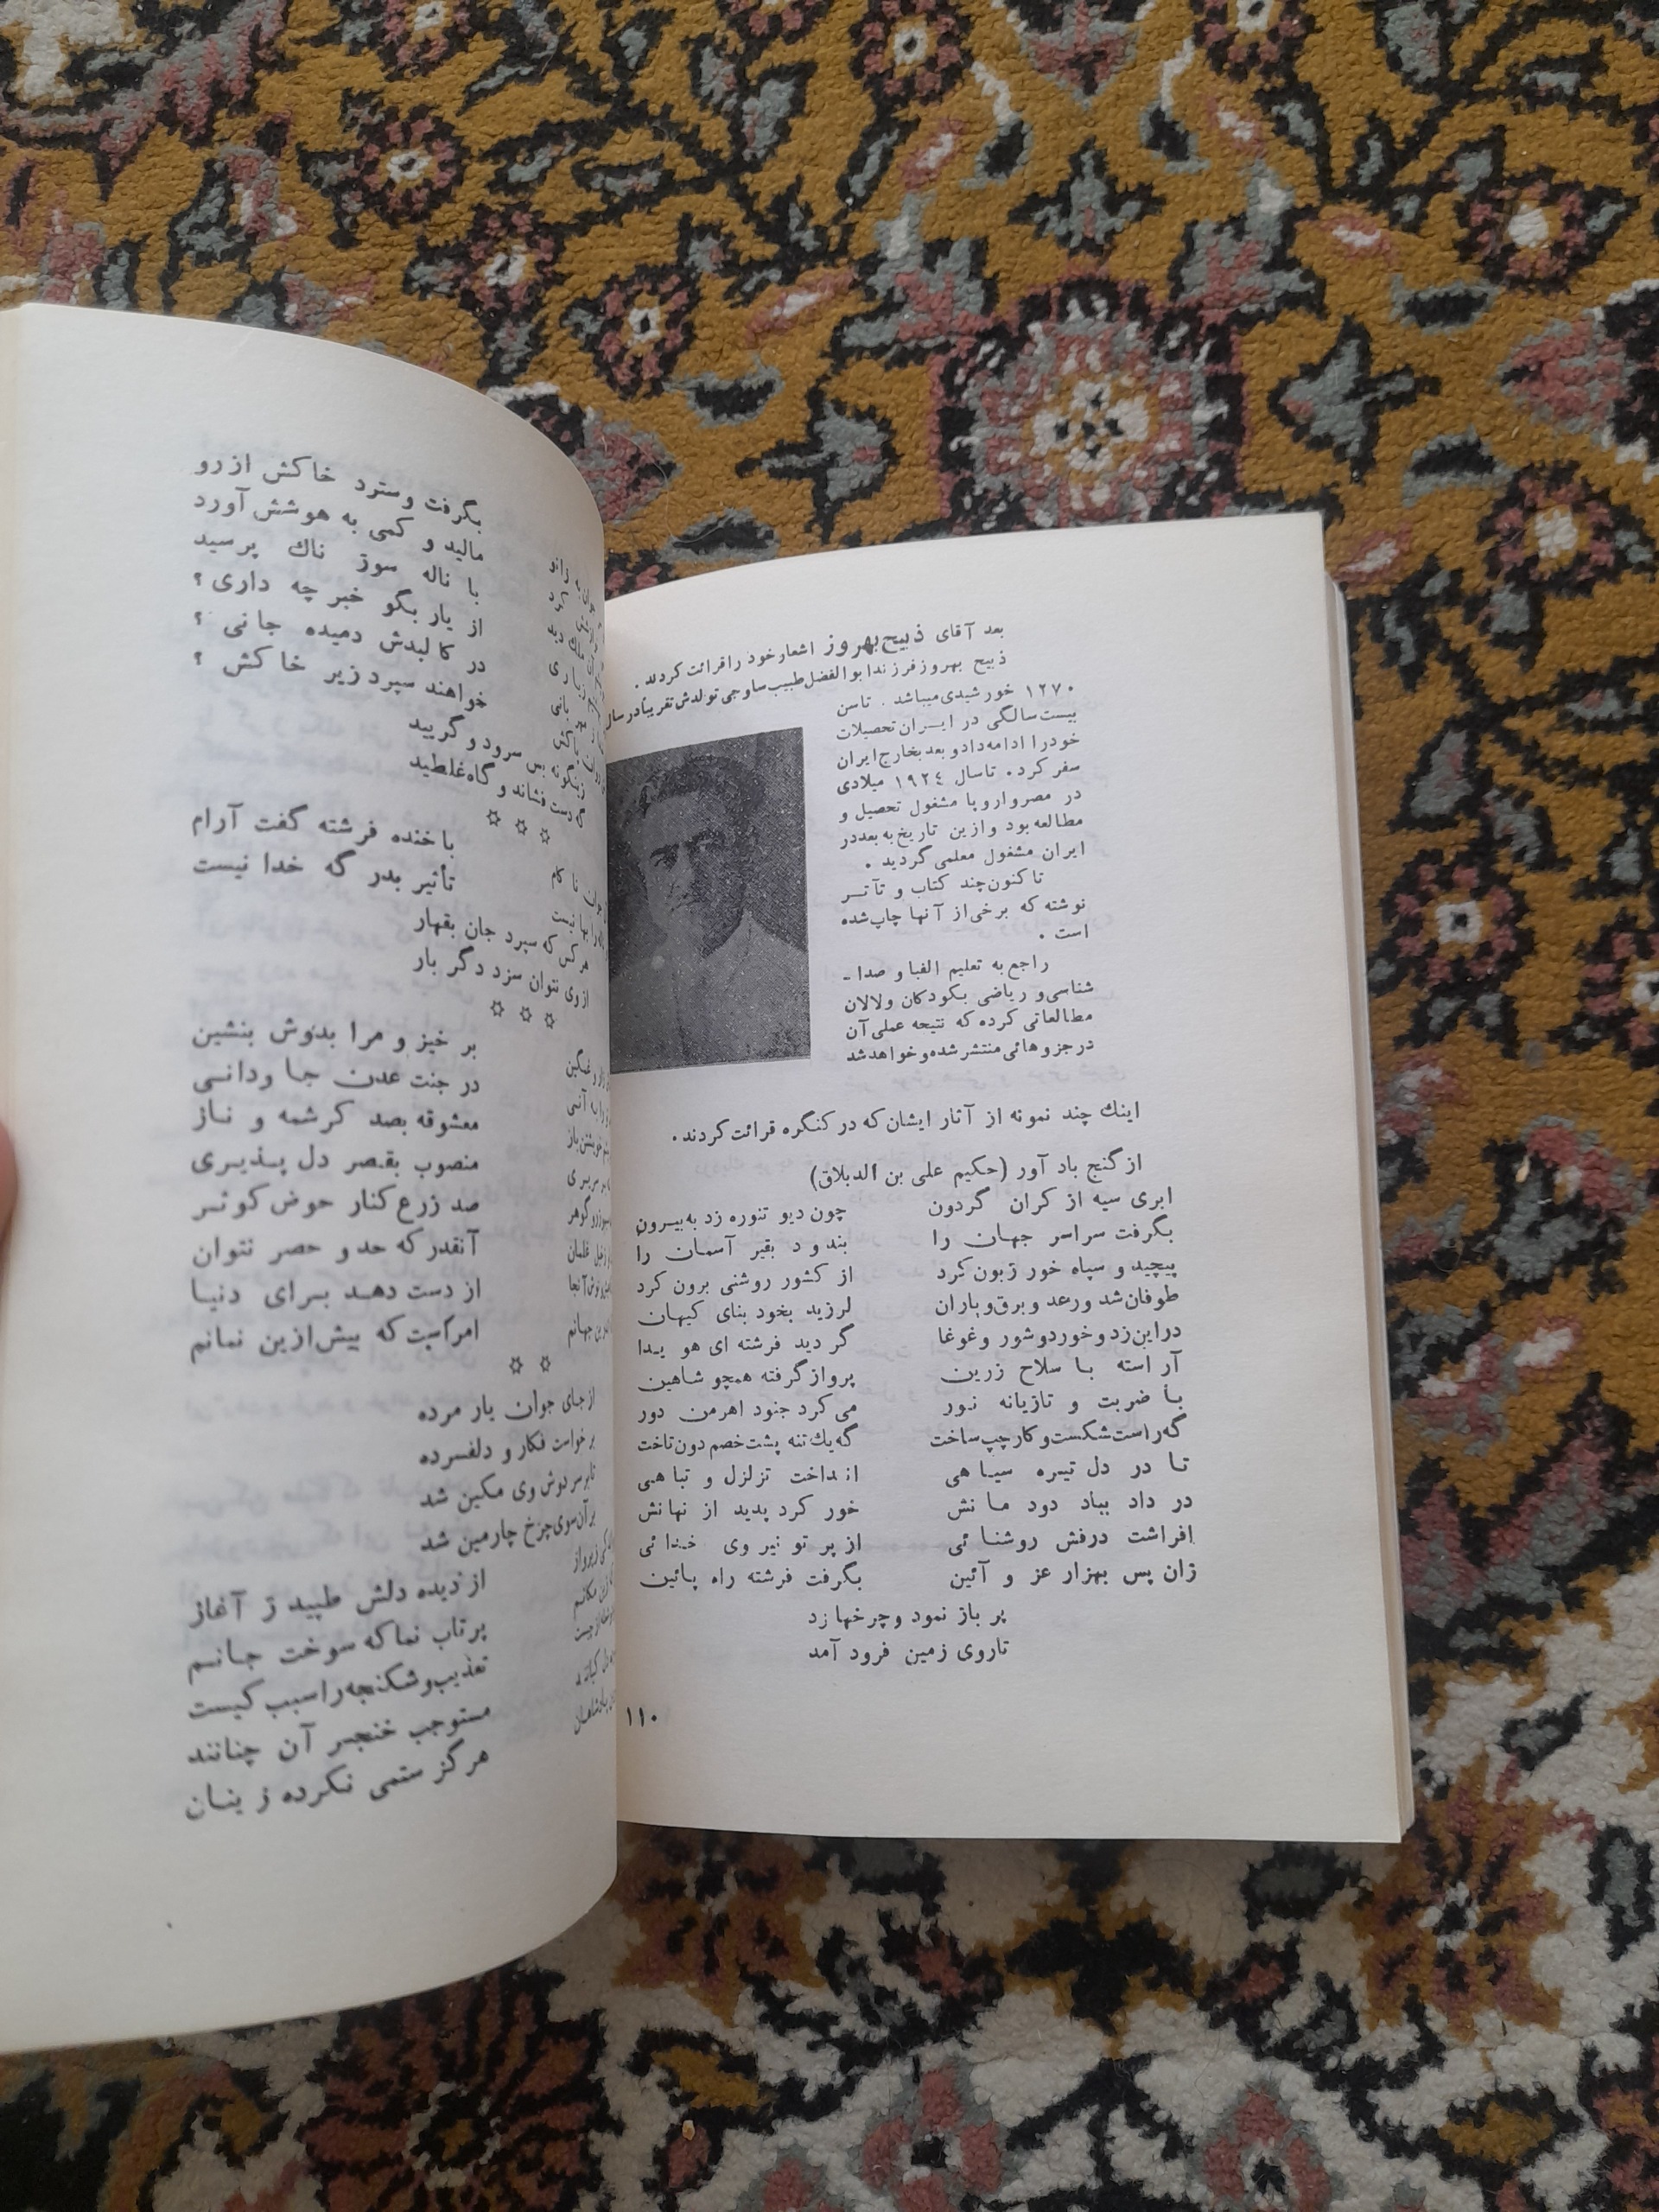 بعد آقای ذبیح بهروز اشعار خود را قرائت کردند.
ذبیح بهروز فرزند ابوالفضل طبیب ساوجی تولدش تقریباً در سال
۱۲۷۰ خورشیدی میباشد. تاسن
بیست سالگی در ایران تحصیلات
خود را ادامه داد و بعد بخارج ایران
سفر کرد. تا سال ۱۹۲۴ میلادی
در مصر و اروپا مشغول تحصیل و
مطالعه بود و از ین تاریخ به بعد در
ایران مشغول معلمی گردید.
تاکنون چند کتاب و تآتر
نوشته که برخی از آنها چاپ شده
است.
راجع به تعلیم الفبا و صدا -
شناسی و ریاضی بکودکان و لالان
مطالعاتی کرده که نتیجه عملی آن
در جزوهائی منتشر شده و خواهد شد
اینك چند نمونه از آثار ایشان که در کنگره قرائت کردند.
از گنج باد آور (حکیم علی بن الدبلاق)
ابری سیه از کران گردون چون دیو تنوره زد به بیرون
بگرفت سراسر جهان را بندود بقیر آسمان را
پیچید و سپاه خور زبون کرد از کشور روشنی برون کرد
طوفان شد و رعد و برق و باران لرزید بخود بنای کیهان
در این زد و خورد و شور و غوغا گردید فرشته ای هویدا
آراسته با سلاح زرین پرواز گرفته همچو شاهین
با ضربت و تازیانه نور می کرد جنود اهرمن دور
گه راست شکست و کار چپ ساخت گه یك تنه پشت خصم دون تاخت
تا در دل تیره سیاهی انداخت تزلزل و تباهی
در داد بباد دود مانش خور کرد پدید از نهانش
افراشت درفش روشنائی از پرتو نیروی خدائی
زان پس بهزار عز و آئین بگرفت فرشته راه پائین
پر باز نمود و چرخها زد
تاروی زمین فرود آمد
۱۱۰
بگرفت و سترد خاکش از رو
مالید و کمی به هوشش آورد
با ناله سوز ناك پرسید
از یار بگو خبر چه داری؟
در کالبدش دمیده جانی؟
خواهند سپرد زیر خاکش؟
زینگونه بس سرود و گریید
گه دست فشاند و گاه غلطید
با خنده فرشته گفت آرام
تأثیر بدر گه خدا نیست
هر کس که سپرد جان بقهار
از وی نتوان سزد دگر بار
بر خیز و مرا بدوش بنشین
در جنت عدن جاودانی
معشوقه بصد کرشمه و ناز
منصوب بقصر دل پذیری
صد زرع کنار حوض کوثر
آنقدر که حد و حصر نتوان
از دست دهد برای دنیا
امر است که بیش ازین نمانم
از جای جوان یار مرده
برخواست فکار و دلفسرده
تا بر سر دوش وی مکین شد
بر آن سوی چرخ چارمین شد
از دیده دلش طپید ز آغاز
پرتاب نما که سوخت جانم
تعذیب و شکنجه را سبب کیست
مستوجب خنجر آن چنانند
هرگز ستمی نکرده زینان